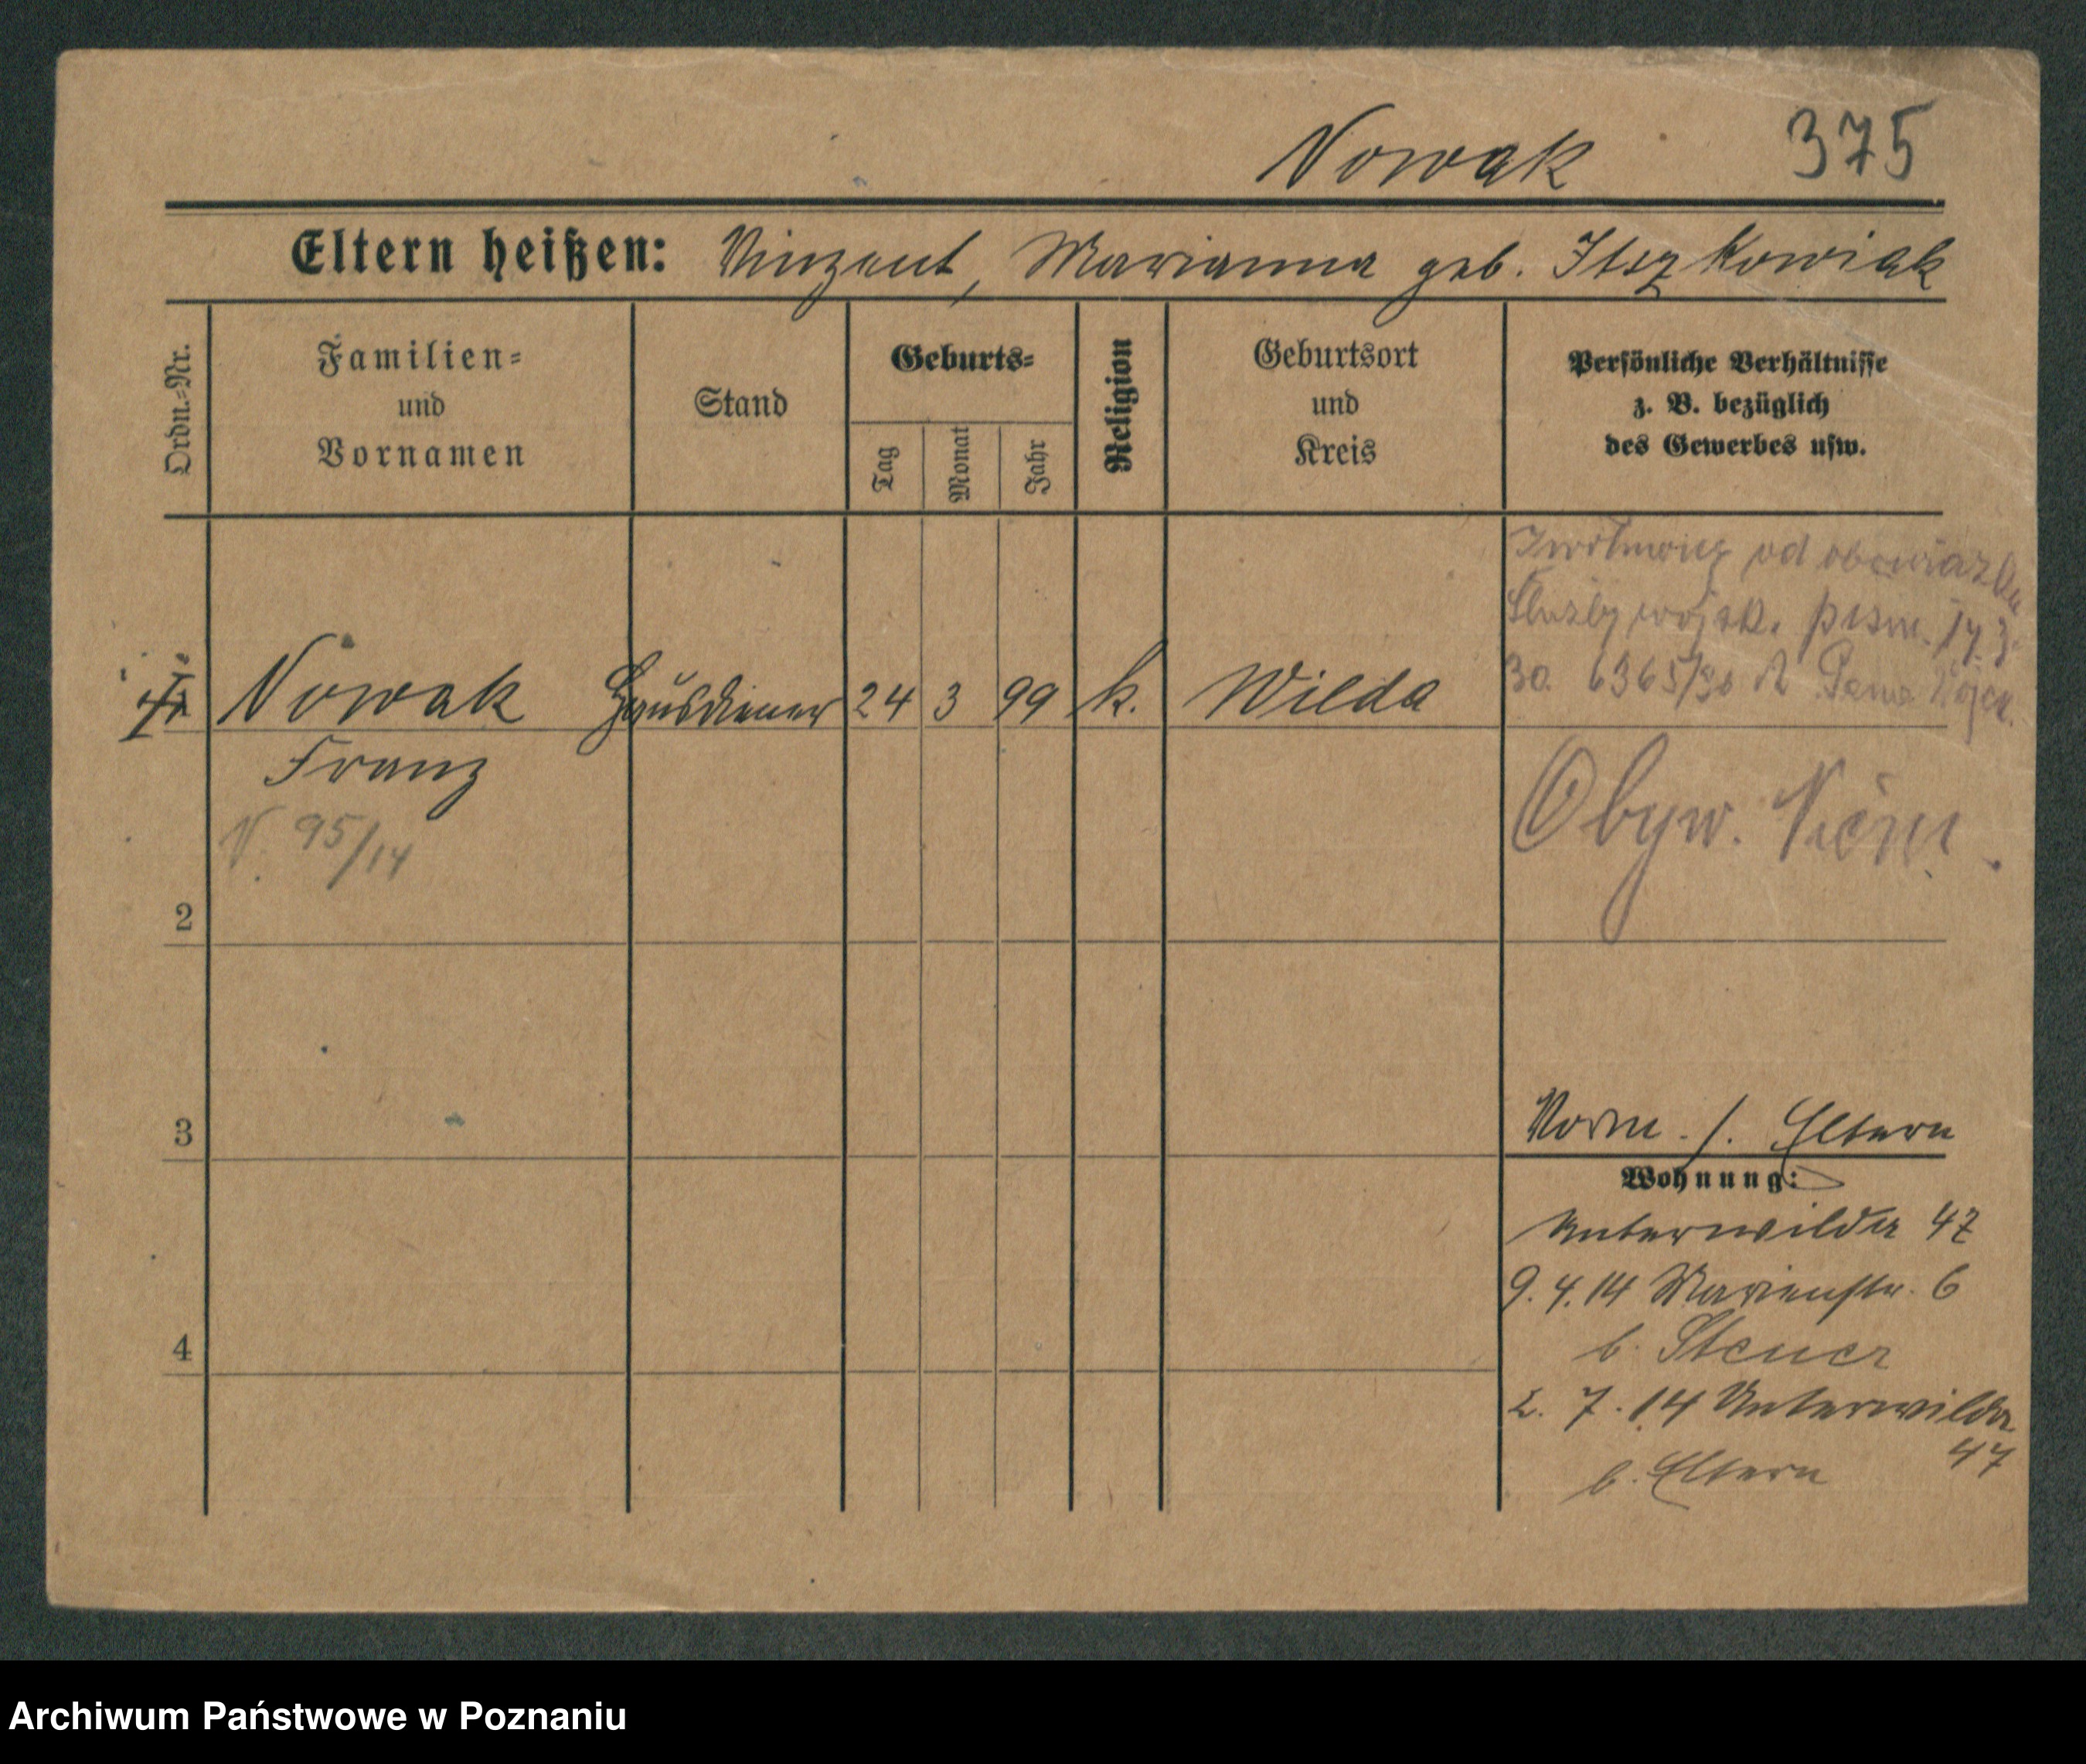 Nowak 375
Eltern heißen: Vinzent, Marianna geb. Itszkowiak
Ordn.-Nr.
Familien-
und
Vornamen
Stand
Geburts-
Tag
Monat
Jahr
Religion
Geburtsort
und
Kreis
Persönliche Verhältnisse
z. B. bezüglich
des Gewerbes usw.
od obowiązku
służby wojsk. pism. 17.3.
30. 6365/30
Nowak Hausdiener 24 3 99 k. Wilda
Franz
N. 95/14
Obyw. Niem.
2
3
4
Vorm. /. Eltern
Wohnung:
Unterwilda 47
9. 4. 14 Marienstr. 6
b. Steuer
2. 7. 14 Unterwilda
47
b. Eltern
Archiwum Państwowe w Poznaniu